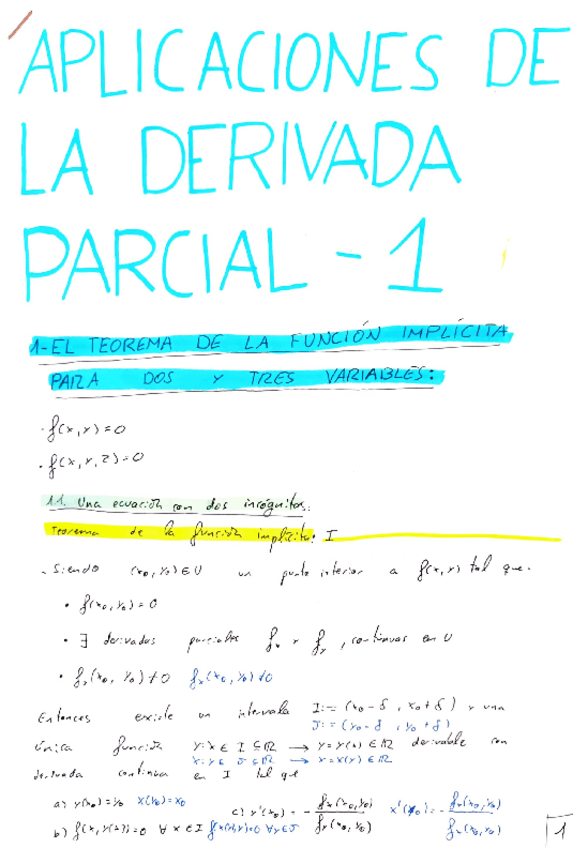 APLICACIONES DE
LA DERIVADA
PARCIAL - 1
1-EL TEOREMA DE LA FUNCIÓN IMPLÍCITA
PARA DOS Y TRES VARIABLES:
· f(x,y)=0
· f(x,y,z)=0
1.1. Una ecuación con dos incógnitas.
Teorema de la función implícita: I
- Siendo (x₀,y₀)∈U un punto interior a f(x,y) tal que.
• f(x₀,y₀)=0
• ∃ derivadas parciales fₓ y f_y, continuas en U
• f_y(x₀,y₀)≠0 fₓ(x₀,y₀)≠0
Entonces existe un intervalo I:=(x₀-δ, x₀+δ) y una
J:=(y₀-δ, y₀+δ)
única función y:x∈I⊆ℝ → y=y(x)∈ℝ derivable con
x:y∈J⊆ℝ → x=x(y)∈ℝ
derivada continua en I tal que
a) y(x₀)=y₀ x(y₀)=x₀ c) y'(x₀)=-fₓ(x₀,y₀)/f_y(x₀,y₀) x'(y₀)=-f_y(x₀,y₀)/fₓ(x₀,y₀)
b) f(x,y(x))=0 ∀x∈I f(x(y),y)=0 ∀y∈J
1